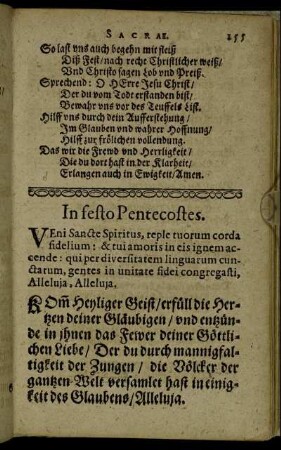 SACRAE. 255
So last vns auch begehn mit fleiß
Diß Fest/nach recht Christlicher weiß/
Vnd Christo sagen Lob vnd Preiß.
Sprechend: O HErre Jesu Christ/
Der du vom Todt erstanden bist/
Bewahr vns vor des Teuffels List.
Hilff vns durch dein Aufferstehung/
Im Glauben vnd wahrer Hoffnung/
Hilff zur frölichen vollendung.
Das wir die Frewd vnd Herrligkeit/
Die du dort hast in der Klarheit/
Erlangen auch in Ewigkeit/Amen.
In festo Pentecostes.
VEni Sancte Spiritus, reple tuorum corda
fidelium: & tui amoris in eis ignem ac-
cende: qui per diversitatem linguarum cun-
ctarum, gentes in unitate fidei congregasti,
Alleluja, Alleluja.
KOm̃ Heyliger Geist/erfüll die Her-
tzen deiner Gläubigen/vnd entzün-
de in jhnen das Fewer deiner Göttli-
chen Liebe/Der du durch mannigfal-
tigkeit der Zungen/die Völcker der
gantzen Welt versamlet hast in einig-
keit des Glaubens/Alleluja.